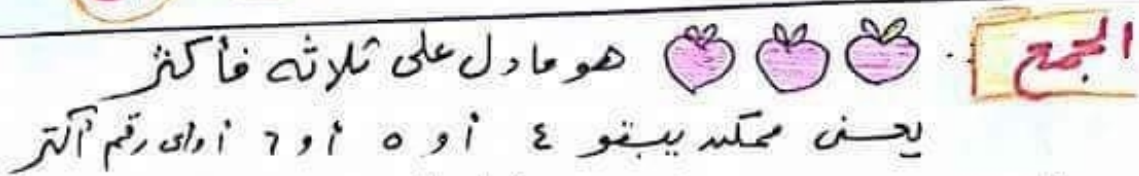 الجمع .. هو ما دل على ثلاثه فأكثر
يعنى ممكن يبقو ٤ أو ٥ أو ٦ أو اى رقم أكتر